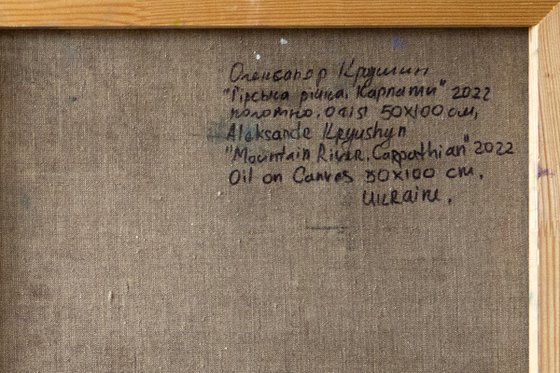 Олександр Крушин
"Гірська річка. Карпати" 2022
полотно, олія 50х100 см,
Aleksandr Kryushyn
"Mountain River. Carpathian" 2022
Oil on Canvas 50x100 cm.
Ukraine.